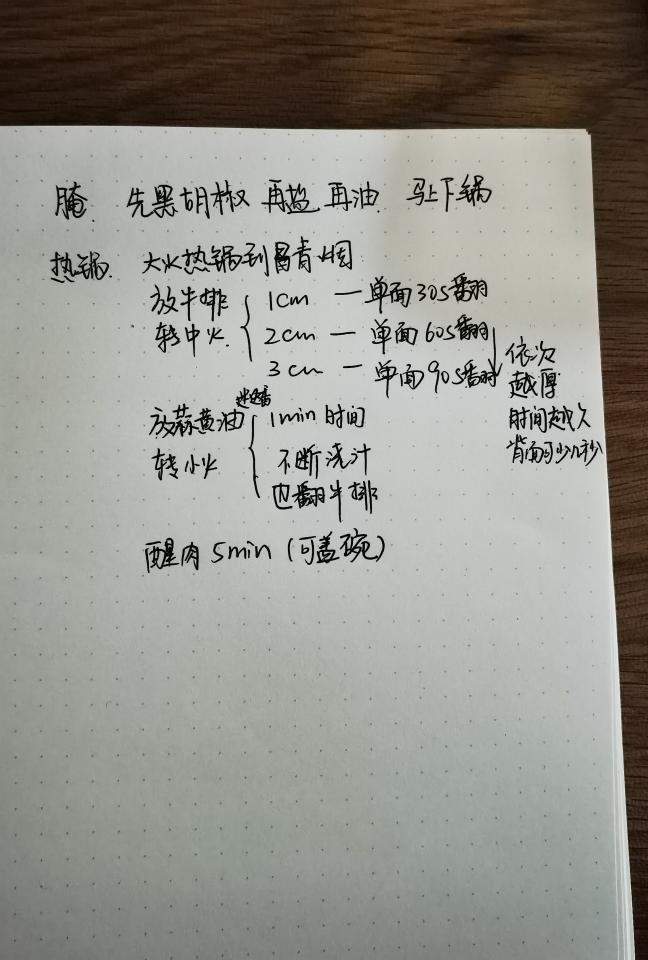 腌 先黑胡椒 再盐 再油 马上下锅
热锅 大火热锅到冒青烟
放牛排 1cm — 单面30s翻
转中火 2cm — 单面60s翻
3cm — 单面90s翻
依次
越厚
时间越久
背面可少几秒
放蒜黄油迷迭香 1min时间
转小火 不断浇汁
也翻牛排
醒肉 5min (可盖碗)